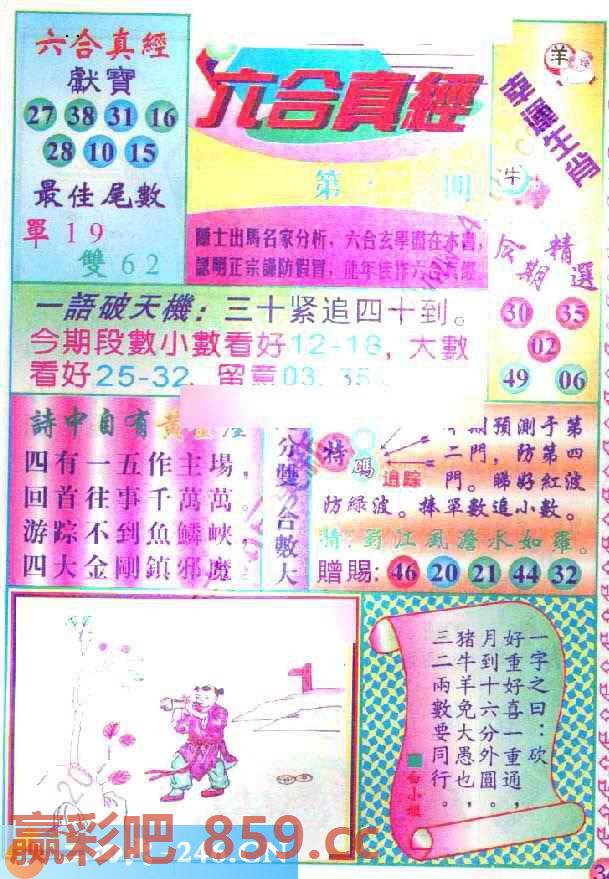 六合真經
獻寶
27 38 31 16
28 10 15
最佳尾數
單19
雙62
六合真經
第 期
隱士出馬名家分析，六合玄學盡在本書，
認明正宗謹防假冒，龍年佳作六合真經
羊
幸運生肖
牛
今期精選
30 35
02
49 06
一語破天機：三十紧追四十到。
今期段數小數看好12-18，大數
看好25-32，留意03.35
詩中自有黃
四有一五作主場，
回首往事千萬萬。
游踪不到魚鱗峽，
四大金剛鎮邪魔。
分雙合數大
特碼
追踪
期預測于第
二門，防第四
門。睇好紅波
防綠波。捧單數追小數。
特
蜀江風澹水如羅。
贈賜：46 20 21 44 32
一字之曰：砍
好重好喜一重通，
月到十六分外圓，
猪牛羊兔大愚也，
三二兩數要同行。
白小姐
赢彩吧 859.cc
246.CN
3